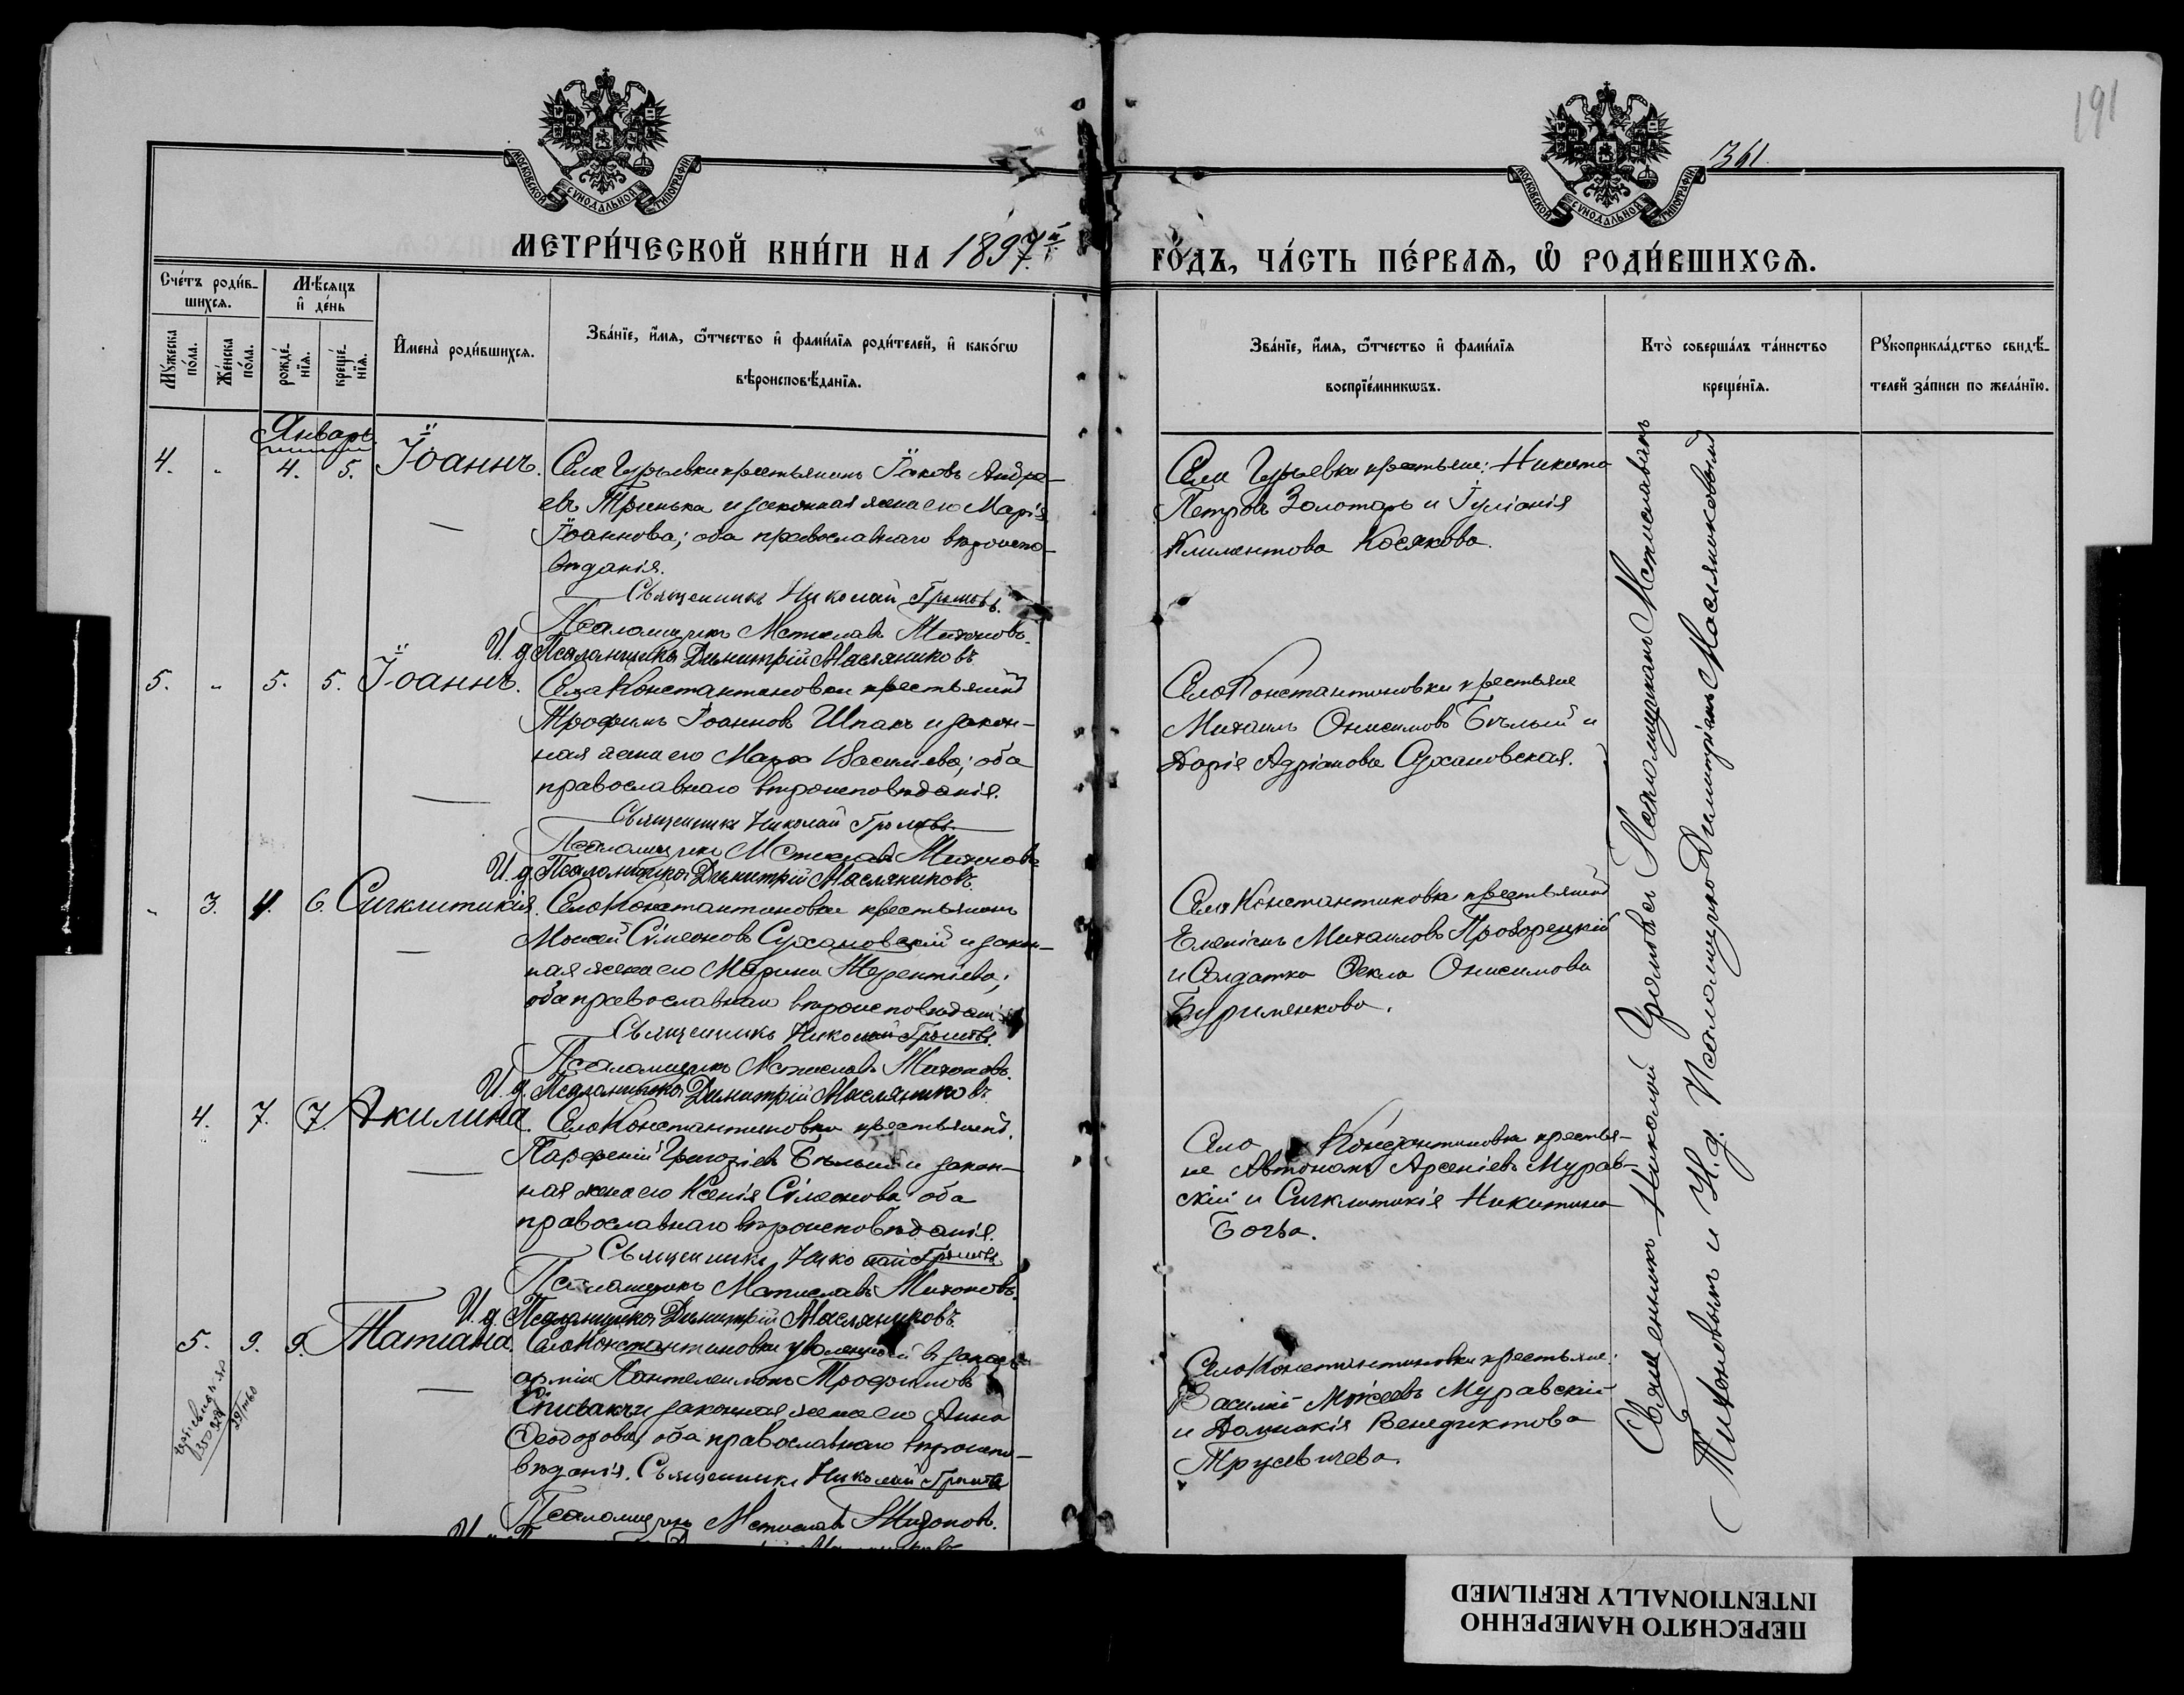 191
361.
МОСКОВСКОЙ СѴНОДАЛЬНОЙ ТИПОГРАФІИ
МОСКОВСКОЙ СѴНОДАЛЬНОЙ ТИПОГРАФІИ
МЕТРИ́ЧЕСКОЙ КНИ́ГИ НА 1897й
ГО́ДЪ, ЧА́СТЬ ПЕ́РВАѦ, Ѡ҆ РОДИ́ВШИХСѦ.
Сче́тъ роди́в-
шихсѧ.
Мꙋжеска
по́ла.
Же́нска
по́ла.
Мѣ́сѧцъ
и҆ де́нь
рожде́-
нїѧ.
креще́-
нїѧ.
И҆мена̀ роди́вшихсѧ.
Зва́нїе, и҆́мѧ, ѻ҆́тчество и҆ фамилїѧ роди́телей, и҆ како́гѡ
вѣроисповѣ́данїѧ.
Зва́нїе, и҆́мѧ, ѻ҆́тчество и҆ фами́лїѧ
воспрїе́мникѡвъ.
Кто̀ соверша́лъ та́инство
креще́нїѧ.
Рꙋкоприкла́дство свидѣ́-
телей за́писи по жела́нїю.
Январь
4. " 4. 5. Іоаннъ. Села Гурьевки крестьянинъ Іаковъ Андре-
евъ Тринька и законная жена его Марія
Іоаннова; оба православнаго вѣроиспо-
вѣданія.
Священникъ Николай Громовъ.
Псаломщикъ Мстиславъ Тихоновъ.
И. д. Псаломщика Димитрій Масляниковъ
Села Гурьевки крестьяне: Никита
Петровъ Золотарь и Іуліанія
Климентова Косякова.
5. " 5. 5. Іоаннъ. Села Константиновки крестьянинъ
Трофимъ Іоанновъ Шпакъ и закон-
ная жена его Марфа Васильева; оба
православнаго вѣроисповѣданія.
Священникъ Николай Громовъ.
Псаломщикъ Мстиславъ Тихоновъ
И. д. Псаломщика Димитрій Масляниковъ.
Села Константиновки крестьяне
Михаилъ Онисимовъ Бѣлый и
Дарія Адріанова Сухановская.
" 3. 4. 6. Сигклитикія. Села Константиновки крестьянинъ
Моисей Сімеоновъ Сухановскій и закон-
ная жена его Марина Терентіева;
оба православнаго вѣроисповѣданія
Священникъ Николай Громовъ.
Псаломщикъ Мстиславъ Тихоновъ.
И. д. Псаломщика Димитрій Масляниковъ.
Села Константиновки крестьянинъ
Михаиловъ
и Солдатка Ѳекла Онисимова
Буримянкова.
4. 7. 7. Акилина. Села Константиновки крестьянинъ
Парфеній Григоріевъ Бѣлый и закон-
ная жена его Ксенія Сімеонова оба
православнаго вѣроисповѣданія.
Священникъ Николай Громовъ
Псаломщикъ Мстиславъ Тихоновъ.
И. д. Псаломщика Димитрій Масляниковъ.
Села Константиновки крестья-
не Автономъ Арсеніевъ Мурав-
скій и Сигклитикія Никитина
5. 9. 9. Татіана. Села Константиновки уволенный въ запасъ
арміи Пантелеимонъ Трофимовъ
Спивакъ и законная жена его Анна
Ѳеодорова, оба православнаго вѣроиспо-
вѣданія. Священникъ Николай Громовъ
Псаломщикъ Мстиславъ Тихоновъ.
Села Константиновки крестьяне:
Василій Моисеевъ Муравскій
и Домникія Венедиктова
Трусевичева.
Священникъ Николай Громовъ съ Псаломщикомъ Мстиславомъ
Тихоновымъ и И. д. Псаломщика Димитріемъ Масляниковымъ
ПЕРЕСНЯТО НАМЕРЕННО
INTENTIONALLY REFILMED